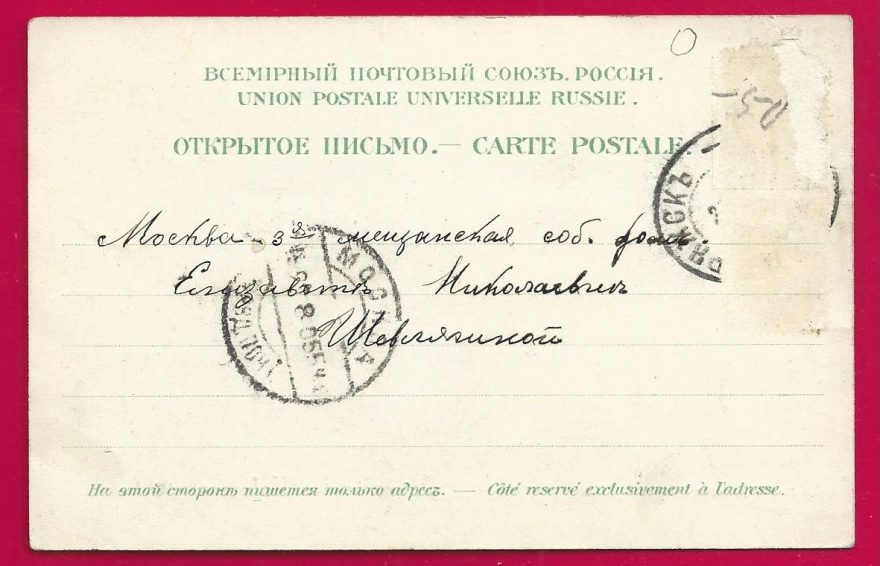 ВСЕМІРНЫЙ ПОЧТОВЫЙ СОЮЗЪ. РОССІЯ.
UNION POSTALE UNIVERSELLE RUSSIE.
ОТКРЫТОЕ ПИСЬМО.— CARTE POSTALE.
-50
Москва - 3я мещанская соб. домъ
Елизаветѣ Николаевнѣ
Шевлягиной
МОСКВА
На этой сторонѣ пишется только адресъ. — Côté reservé exclusivement à l'adresse.